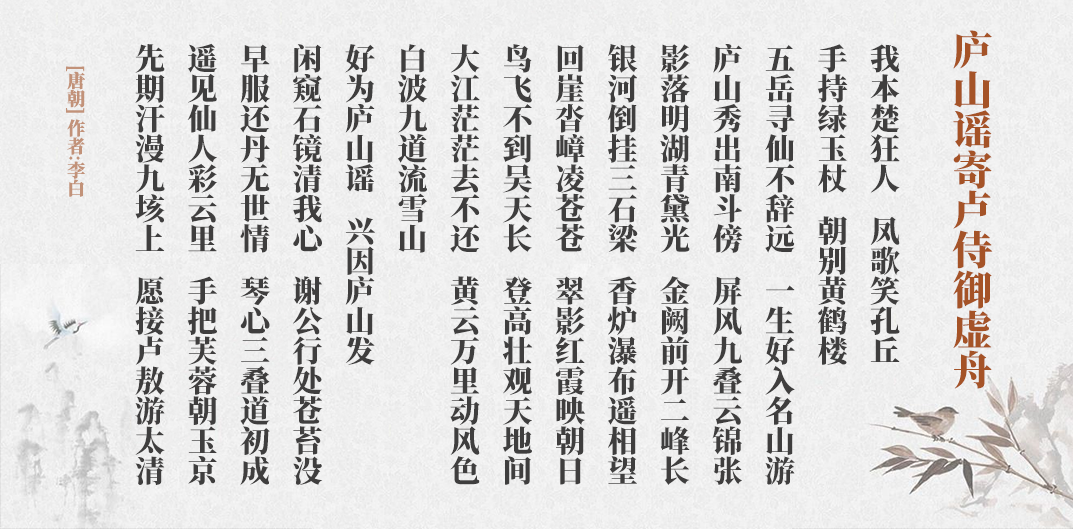 庐山谣寄卢侍御虚舟
我本楚狂人 凤歌笑孔丘
手持绿玉杖 朝别黄鹤楼
五岳寻仙不辞远 一生好入名山游
庐山秀出南斗傍 屏风九叠云锦张
影落明湖青黛光 金阙前开二峰长
银河倒挂三石梁 香炉瀑布遥相望
回崖沓嶂凌苍苍 翠影红霞映朝日
鸟飞不到吴天长 登高壮观天地间
大江茫茫去不还 黄云万里动风色
白波九道流雪山
好为庐山谣 兴因庐山发
闲窥石镜清我心 谢公行处苍苔没
早服还丹无世情 琴心三叠道初成
遥见仙人彩云里 手把芙蓉朝玉京
先期汗漫九垓上 愿接卢敖游太清
[唐朝] 作者:李白